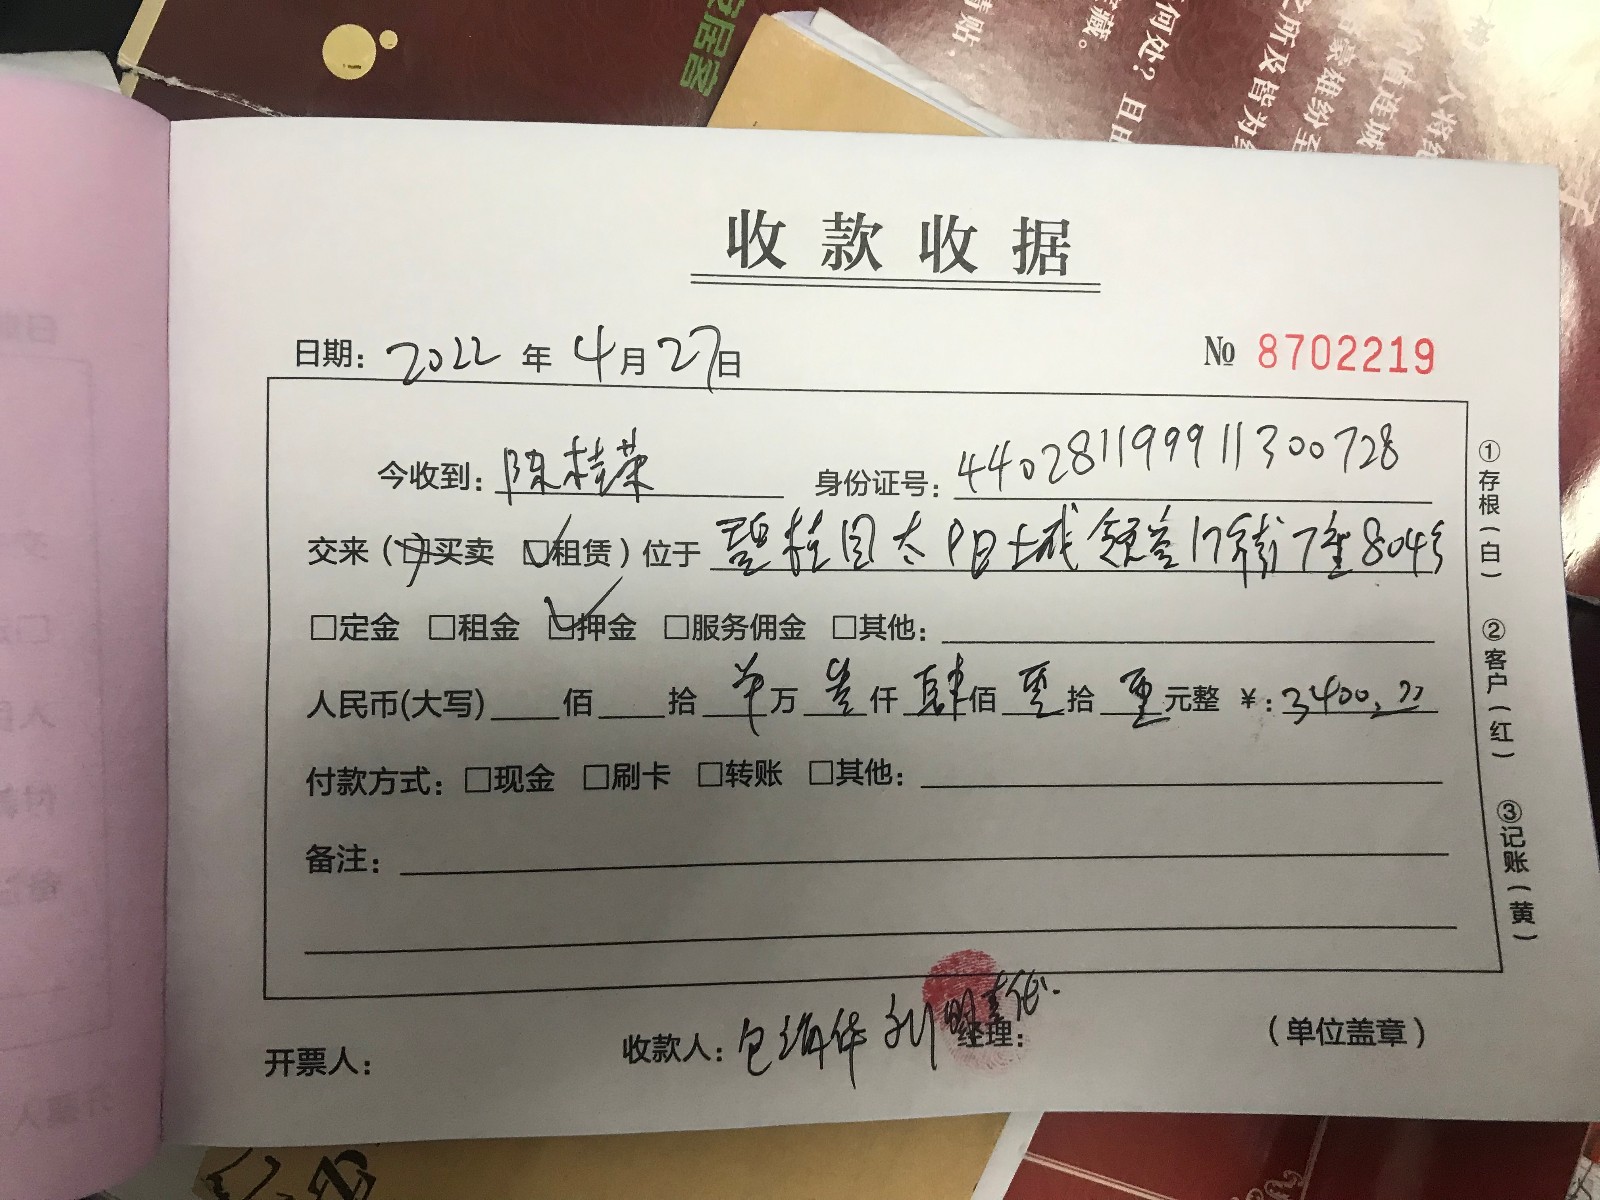 安居客
收款收据
日期: 2022 年 4 月 27 日 № 8702219
今收到: 陈桂荣 身份证号: 440281199911300728
交来 (□买卖 □租赁) 位于 碧桂园太阳城领誉17街7座804号
□定金 □租金 □押金 □服务佣金 □其他:
人民币(大写) 佰 拾 万 叁仟 肆佰 零拾 零元整 ¥: 3400.00
付款方式: □现金 □刷卡 □转账 □其他:
备注:
开票人: 收款人: 包海华 经理: (单位盖章)
①存根(白) ②客户(红) ③记账(黄)